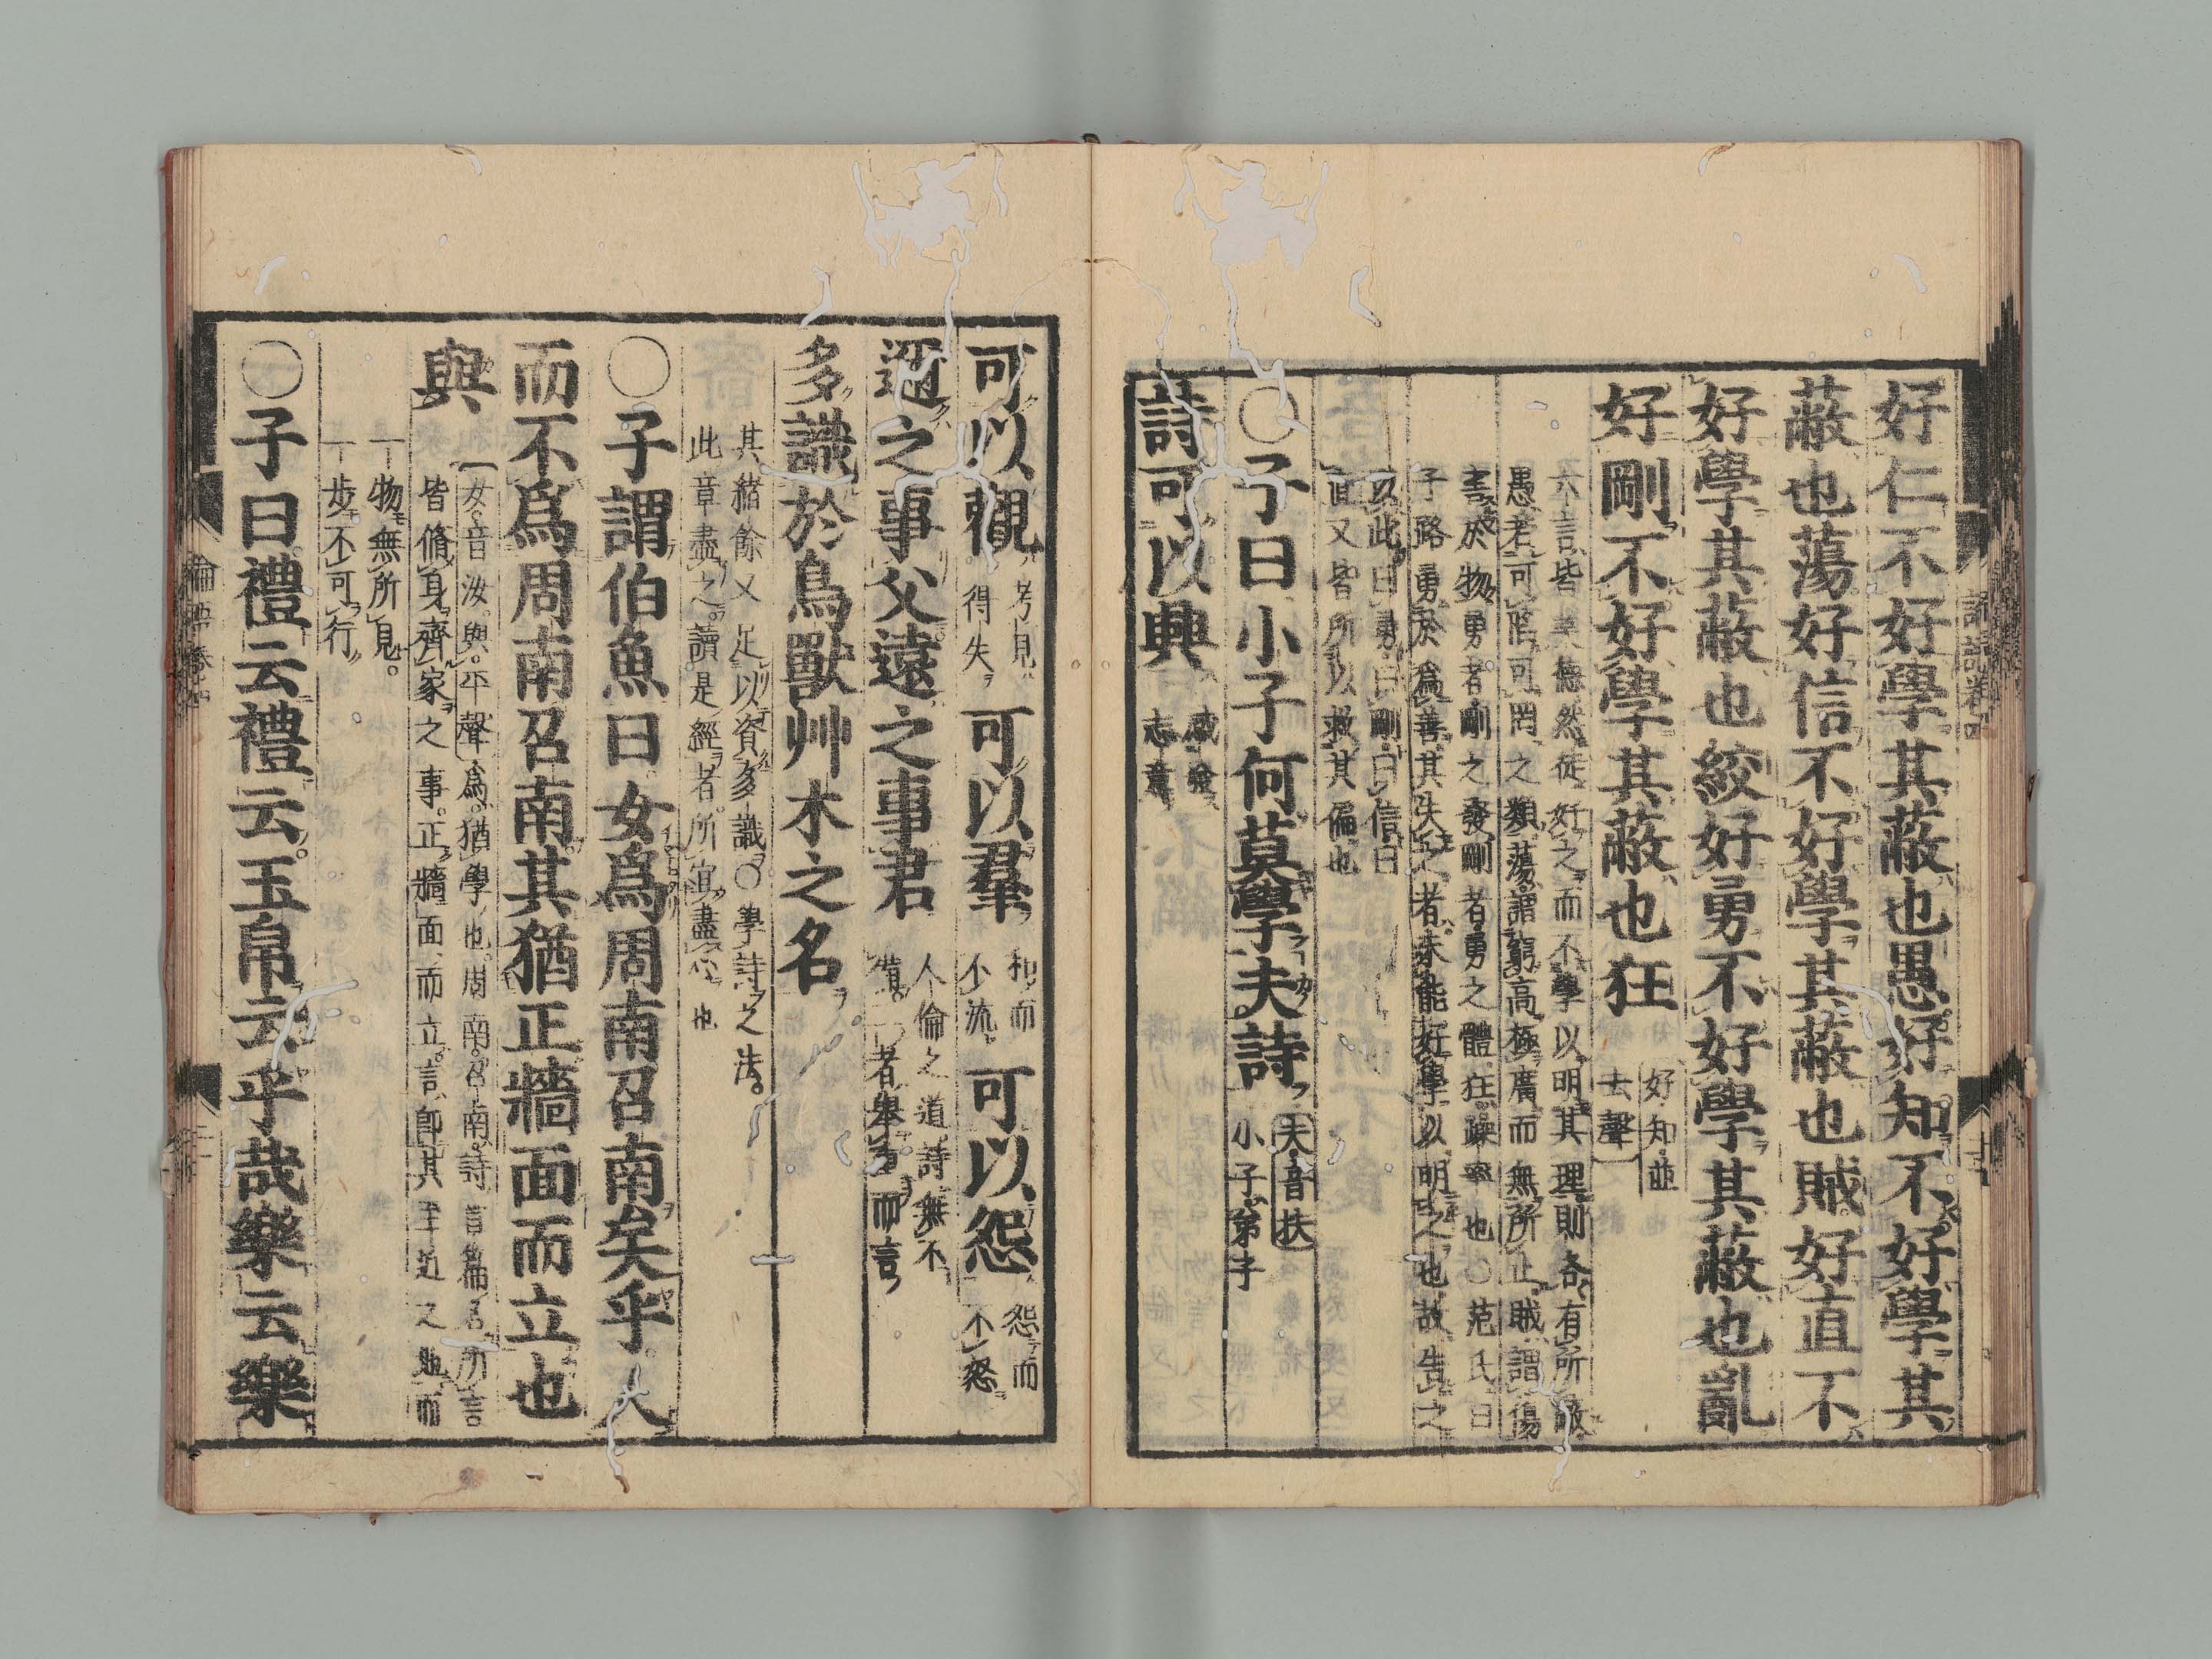 好仁不好學其蔽也愚好知不好學其
蔽也蕩好信不好學其蔽也賊好直不
好學其蔽也絞好勇不好學其蔽也亂
好剛不好學其蔽也狂
好知並
去聲
六言皆美德然徒好之而不學以明其理則各有所蔽
愚若可陷可罔之類蕩謂窮高極廣而無所止賊謂傷
害於物勇者剛之發剛者勇之體狂躁率也〇范氏曰
子路勇於爲善其失之者未能好學以明之也故告之
以此曰勇曰剛曰信曰
直又皆所以救其偏也
〇子曰小子何莫學夫詩
夫音扶
小子弟子
詩可以興
感發
志意
可以觀
考見
得失
可以羣
和而
不流
可以怨
怨而
不怒
邇之事父遠之事君
人倫之道詩無不
備二者舉重而言
多識於鳥獸艸木之名
其緒餘又足以資多識〇學詩之法
此章盡之讀是經者所宜盡心也
〇子謂伯魚曰女爲周南召南矣乎人
而不爲周南召南其猶正牆面而立也
與
女音汝與平聲爲猶學也周南召南詩首篇名所言
皆脩身齊家之事正牆面而立言卽其至近之地而
一物無所見
一步不可行
〇子曰禮云禮云玉帛云乎哉樂云樂